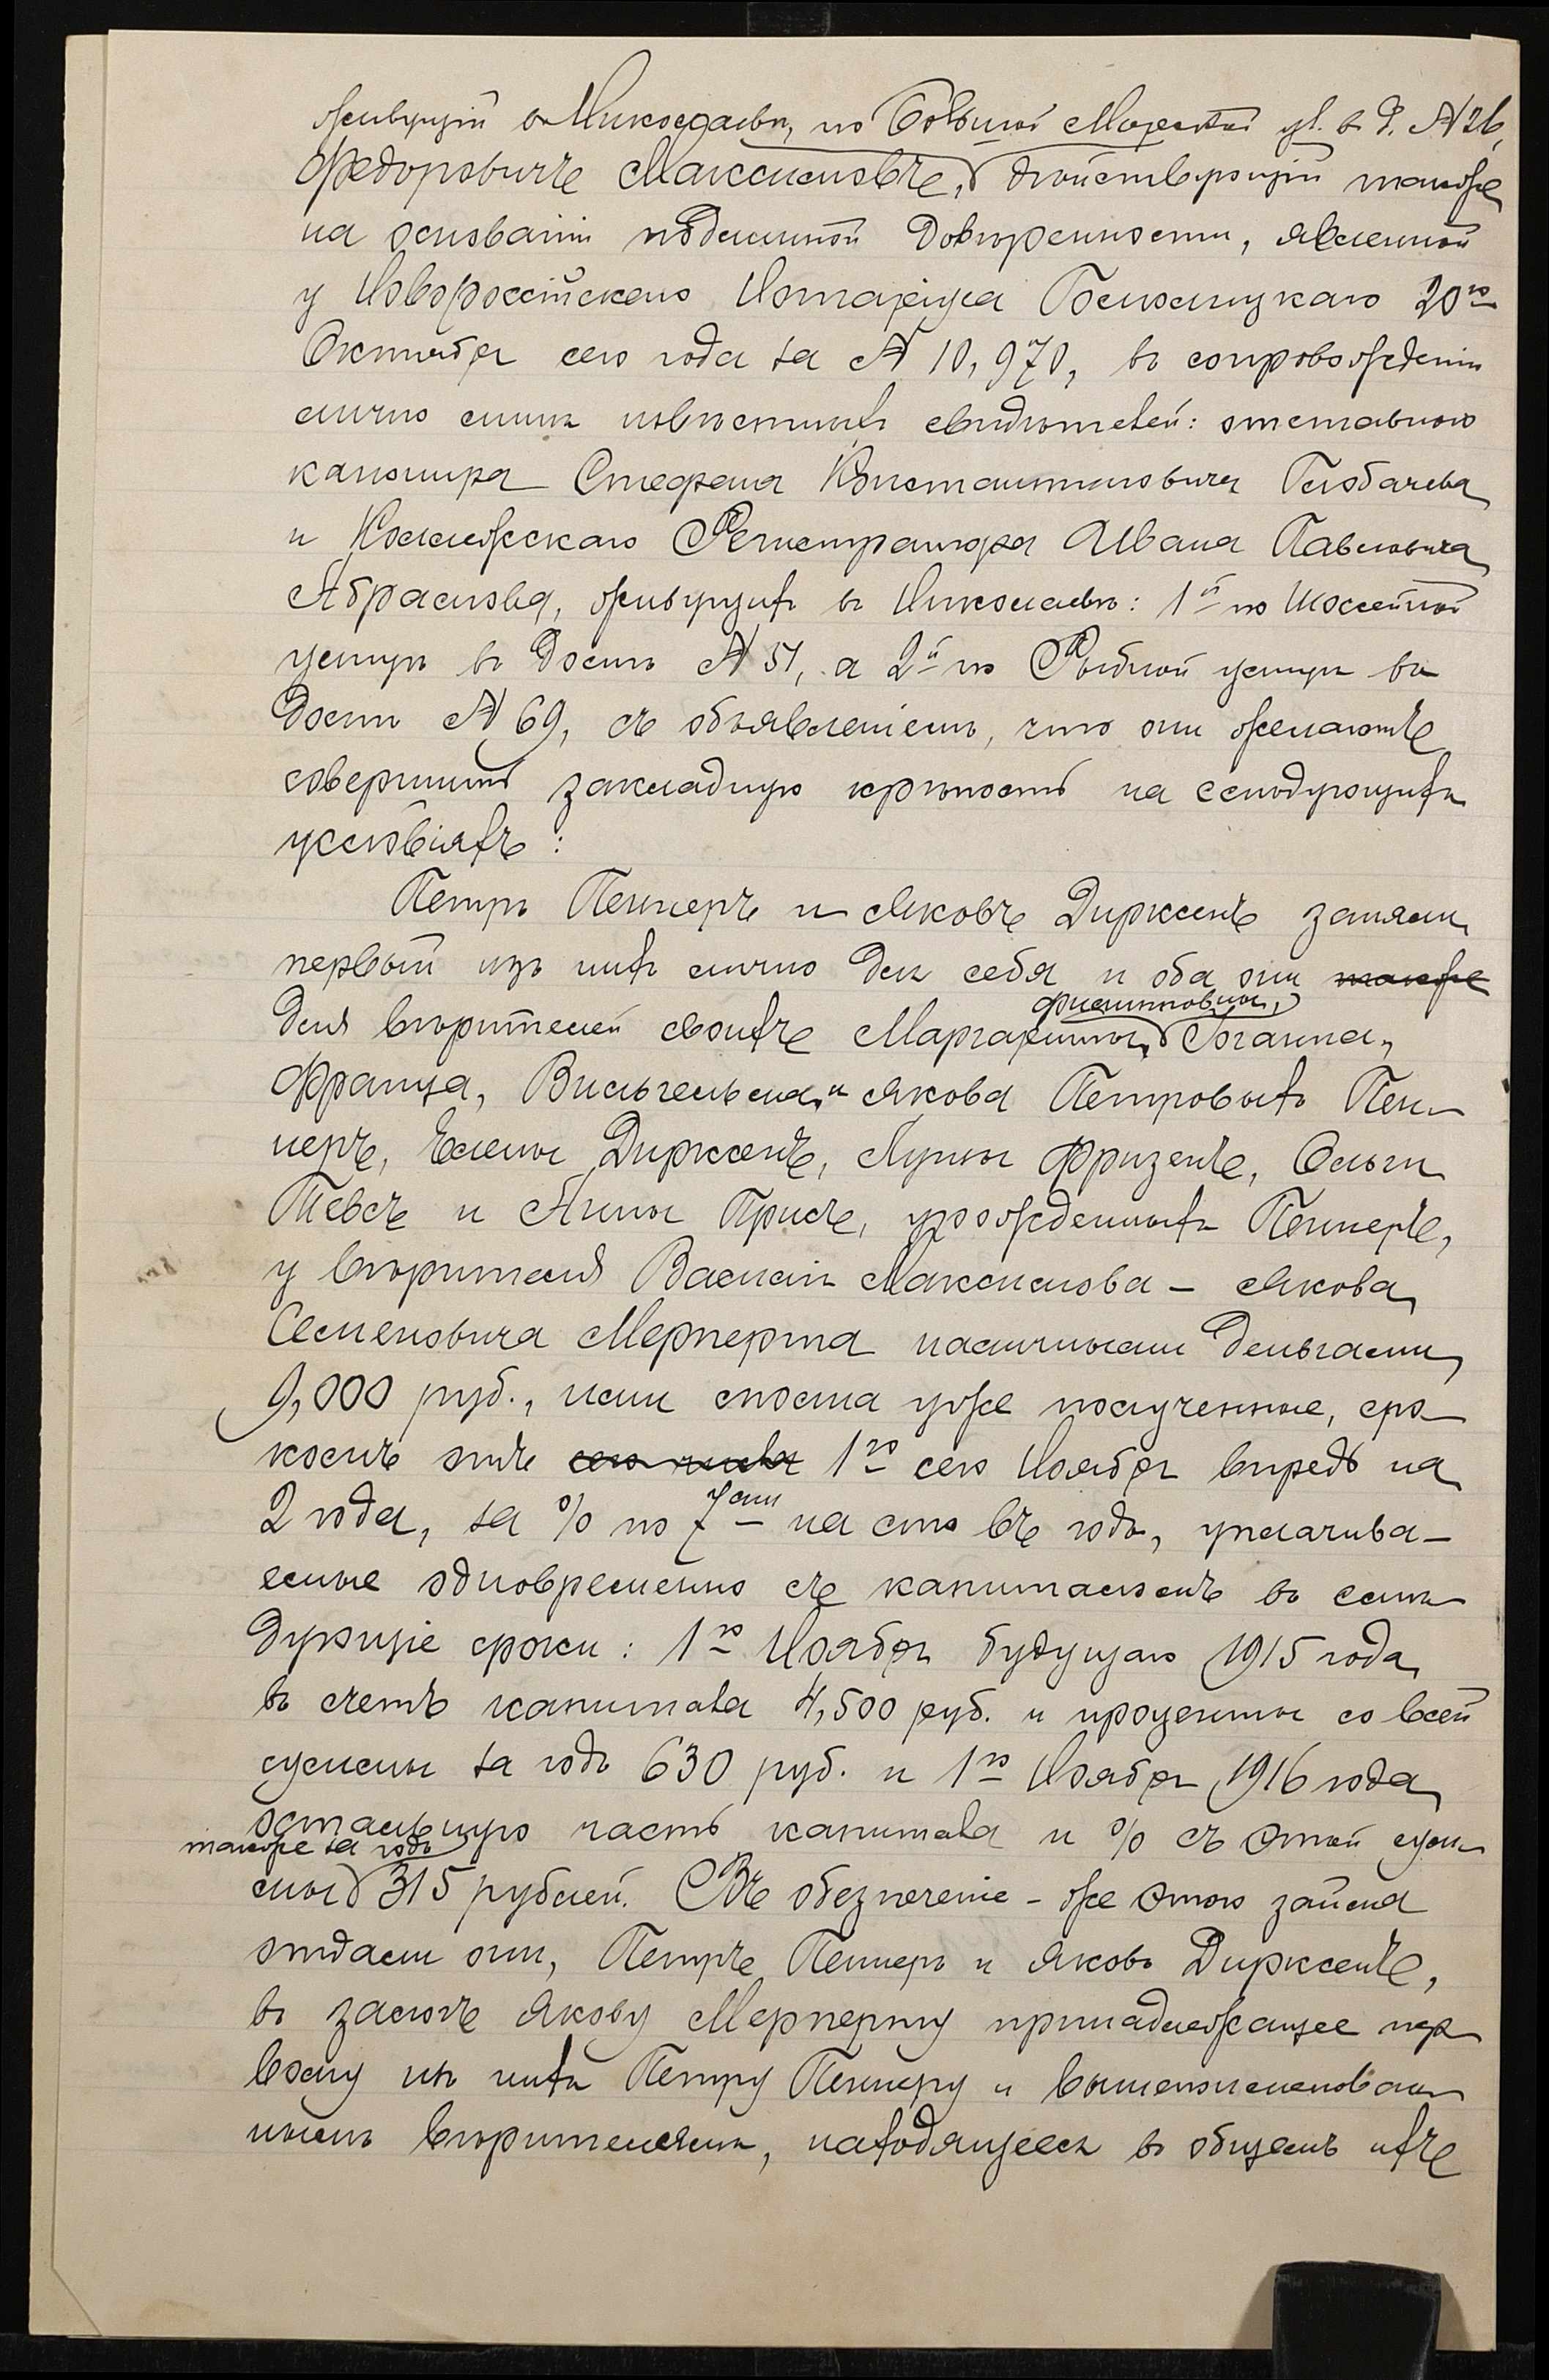 живущій въ Николаевѣ, по Большой Морской ул. в д. № 26,
Федоровичъ Максимовъ, дѣйствующій также
на основаніи подлинной довѣренности, явленной
у Новороссійскаго Нотаріуса 20го
Октября сего года за № 10,970, въ сопровожденіи
лично ему извѣстныхъ свидѣтелей: отставного
канонира Стефана Константиновича Глобачева
и Коллежскаго Регистратора Ивана Павловича
Абрамова, живущихъ въ Николаевѣ: 1й по Шоссейной
улицѣ въ домѣ № 51, а 2й по Рыбной улицѣ въ
домѣ № 69, съ объявленіемъ, что они желаютъ
совершить закладную крѣпость на слѣдующихъ
условіяхъ:
Петръ Пеннеръ и Яковъ Дирксенъ заняли
первый изъ нихъ лично для себя и оба они также
Филипповны,
для вѣрителей своихъ Маргариты, Іоганна,
Франца, Вильгельма, и Якова Петровыхъ Пен-
неръ, Елены Дирксенъ, Луизы Фризенъ, Ольги
Тевсъ и Анны Присъ, урожденныхъ Пеннеръ,
у вѣрителя Василія Максимова - Якова
Семеновича Мерперта наличными деньгами
9,000 руб., ими сполна уже полученные, сро-
комъ отъ сего числа 1го сего Ноября впредь на
2 года, за % по 7ми на сто въ годъ, уплачива-
емые одновременно съ капиталомъ въ слѣ-
дующіе сроки: 1го Ноября будущаго 1915 года
въ счетъ капитала 4,500 руб. и проценты со всей
суммы за годъ 630 руб. и 1го Ноября 1916 года
остальную часть капитала и % съ этой сум-
также за годъ
мы 315 рублей. Въ обезпеченіе - же этого займа
отдали они, Петръ Пеннеръ и Яковъ Дирксенъ,
въ залогъ Якову Мерперту принадлежащее пер-
вому изъ нихъ Петру Пеннеру и вышепоименован-
нымъ вѣрителямъ, находящееся въ общемъ ихъ